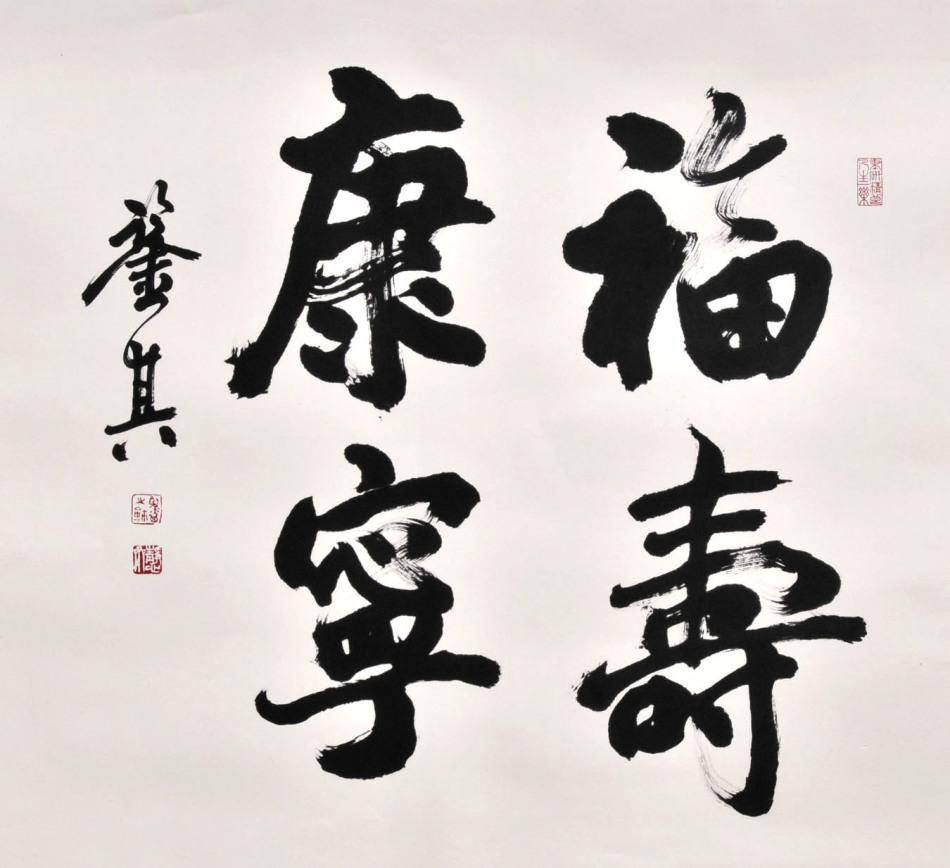 福壽
康寧
鑒其